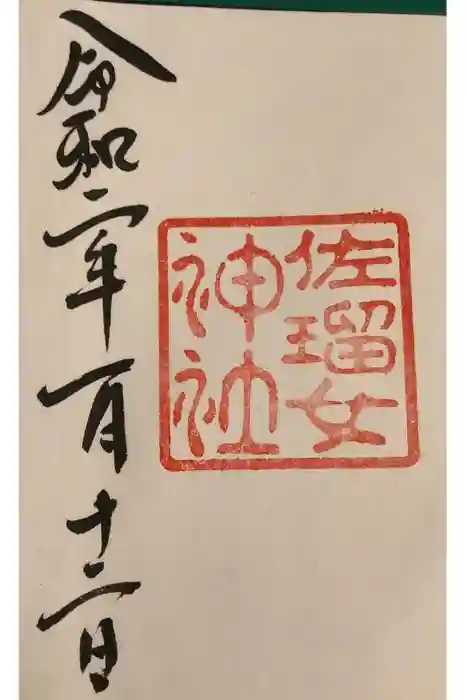 佐瑠女
神社
令和二年一月十二日